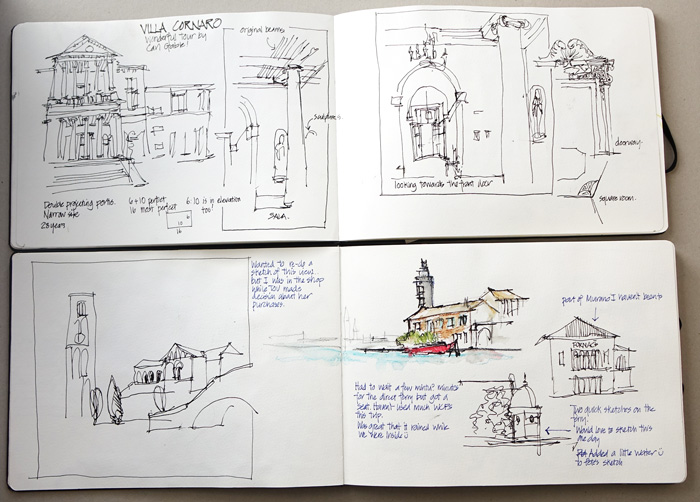 VILLA CORNARO
Wonderful tour by
Carl Gable!
original beams
sculptures
Double projecting portico.
Narrow site
28 years
6+10 perfect
16 most perfect
6:10 is in elevation
too!
6
10
16
SALA.
looking towards the front door
doorway
square room.
Wanted to re-do a
sketch of this view
but I was in the shop
while
made
decision about her
purchases.
part of Murano I haven't
FORNACE
Had to wait a few
minutes
for the direct ferry but got a
seat. Haven't used much
this trip.
Was great that it rained while
we were inside
Two quick sketches on the
ferry.
Would love to sketch this
one day
Added a little water
to
sketch